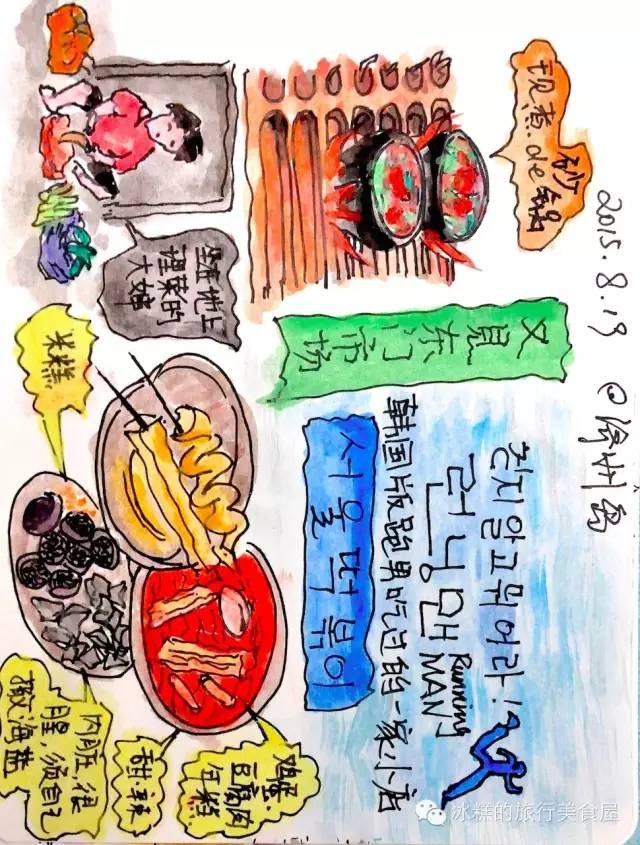 2015.8.19 @济州岛
现煮de砂锅
坐在地上
理菜的
大婶
又見东门市场
런닝맨 Running MAN
韩国版跑男吃过的一家小店
서울떡볶이
米糕
鸡蛋.
豆腐肉
年糕
甜辣
内脏,很
腥,须自己
撒海盐
冰糕的旅行美食屋